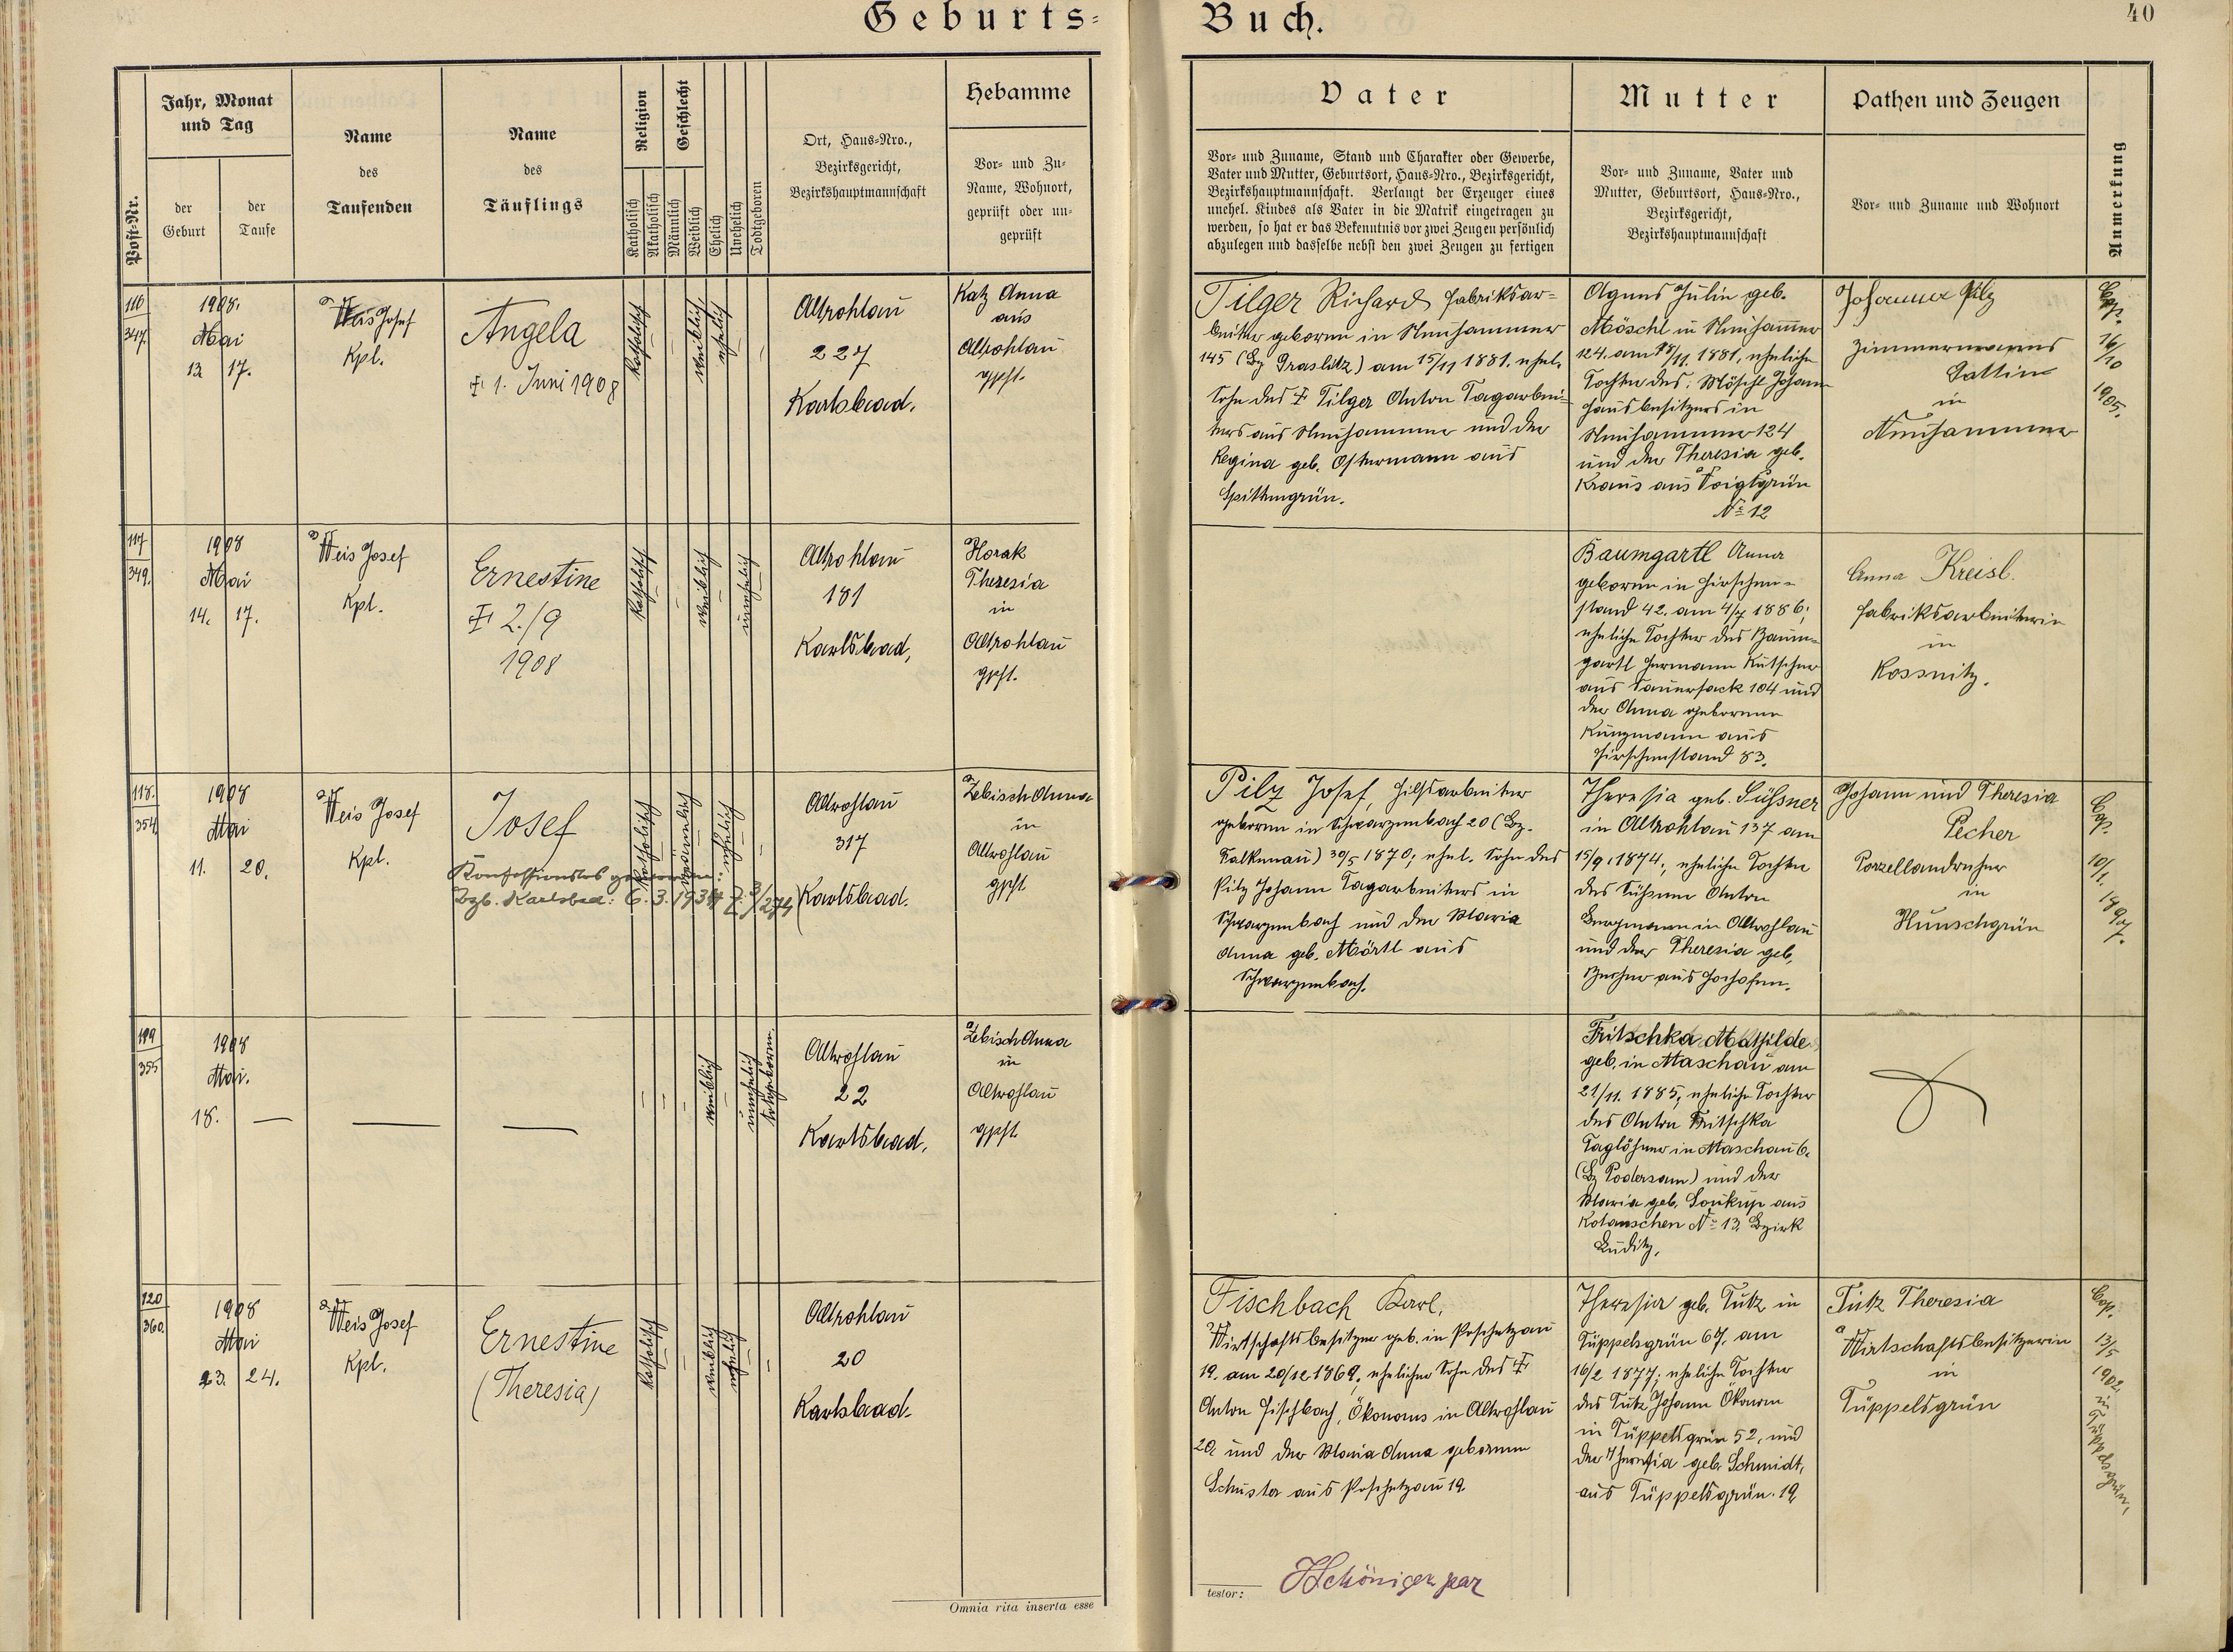 Geburts-
Buch.
40
Post-Nr.
Jahr, Monat
und Tag
der
Geburt
der
Taufe
Name
des
Taufenden
Name
des
Täuflings
Religion
Katholisch
Akatholisch
Geschlecht
Männlich
Weiblich
Ehelich
Unehelich
Todtgeboren
Ort, Haus-Nro.,
Bezirksgericht,
Bezirkshauptmannschaft
Hebamme
Vor- und Zu-
Name, Wohnort,
geprüft oder un-
geprüft
Vater
Vor- und Zuname, Stand und Charakter oder Gewerbe,
Vater und Mutter, Geburtsort, Haus-Nro., Bezirksgericht,
Bezirkshauptmannschaft. Verlangt der Erzeuger eines
unehel. Kindes als Vater in die Matrik eingetragen zu
werden, so hat er das Bekenntnis vor zwei Zeugen persönlich
abzulegen und dasselbe nebst den zwei Zeugen zu fertigen
Mutter
Vor- und Zuname, Vater und
Mutter, Geburtsort, Haus-Nro.,
Bezirksgericht,
Bezirkshauptmannschaft
Pathen und Zeugen
Vor- und Zuname und Wohnort
Anmerkung
116
347.
1908.
Mai
13 17.
Weis Josef
Kpl.
Angela
† 1. Juni 1908
katholisch
weiblich
ehelich
Altrohlau
227
Karlsbad.
Katz Anna
aus
Altrohlau
gpft.
Tilger Richard Fabriksar-
beiter geboren in Neuhammer
145 (Bz Graslitz) am 15/11 1881. ehel.
Sohn des † Tilger Anton Tagarbei-
ters aus Neuhammer und der
Regina geb. Ostermann aus
Spittengrün.
Agnes Julie geb.
Möschl in Neuhammer
124. am 18/11. 1881, eheliche
Tochter des: Möschl Johann
Hausbesitzers in
Neuhammer 124
und der Theresia geb.
Kraus aus Voigtsgrün
No 12
Johanna Pilz
Zimmermanns
Gattin
in
Neuhammer
Cop.
16/10
1905.
117
349.
1908
Mai
14. 17.
Weis Josef
Kpl.
Ernestine
† 2./9
1908
katholisch
weiblich
unehelich
Altrohlau
181
Karlsbad,
Horak
Theresia
in
Altrohlau
gpft.
Baumgartl Anna
geboren in Hirschen-
stand 42. am 4/7 1886;
eheliche Tochter des Baum-
gartl Hermann Kutscher
aus Sauersack 104 und
der Anna geborenen
Kunzmann aus
Hirschenstand 83.
Anna Kreisl.
Fabriksarbeiterin
in
Rossnitz.
118.
354.
1908
Mai
11. 20.
Weis Josef
Kpl.
Josef
Konfessionslos geworden:
Bzb. Karlsbad: 6. 3. 1934
katholisch
männlich
ehelich
Altrohlau
317
Karlsbad.
Zebisch Anna
in
Altrohlau
gpft
Pilz Josef, Hilfsarbeiter
geboren in Schwarzenbach 20 (Bz.
Falkenau) 30/5 1870; ehel. Sohn des
Pilz Johann Tagarbeiters in
Schwarzenbach und der Maria
Anna geb. Mörtl aus
Schwarzenbach.
Theresia geb. Süßner
in Altrohlau 137 am
15/9. 1874; eheliche Tochter
des Süßner Anton
Bergmann in Altrohlau
und der Theresia geb.
aus Hochofen.
Johann und Theresia
Pecher
Porzellandreher
in
Hunschgrün
Cop.
10/1.
1897.
119
355
1908
Mai.
18. —
—
—
weiblich
unehelich
totgeboren.
Altrohlau
22
Karlsbad.
Zebisch Anna
in
Altrohlau
gpft.
Fritschka Mathilde
geb. in Maschau am
21/11. 1885; eheliche Tochter
des Anton Fritschka
Taglöhner in Maschau 6.
(Bz Podersam) und der
Maria geb. Soukup aus
Kolanschen No 13. Bezirk
Luditz.
120
360.
1908
Mai
23. 24.
Weis Josef
Kpl.
Ernestine
(Theresia)
katholisch
weiblich
ehelich
Altrohlau
20
Karlsbad.
Fischbach Karl.
Wirtschaftsbesitzer geb. in Poschetzau
19. am 20/12 1869, ehelicher Sohn des †
Anton Fischbach, Ökonoms in Altrohlau
20. und der Maria Anna geborenen
Schuster aus Poschetzau 19.
Theresia geb. Tutz in
Tüppelsgrün 67. am
16/2 1877; eheliche Tochter
des Tutz Johann Ökonom
in Tüppelsgrün 52, und
der Theresia geb. Schmidt,
aus Tüppelsgrün. 19.
Tutz Theresia
Wirtschaftsbesitzerin
in
Tüppelsgrün
Cop.
13/5
1902
in
Tüppelsgrün.
Omnia rita inserta esse
testor: